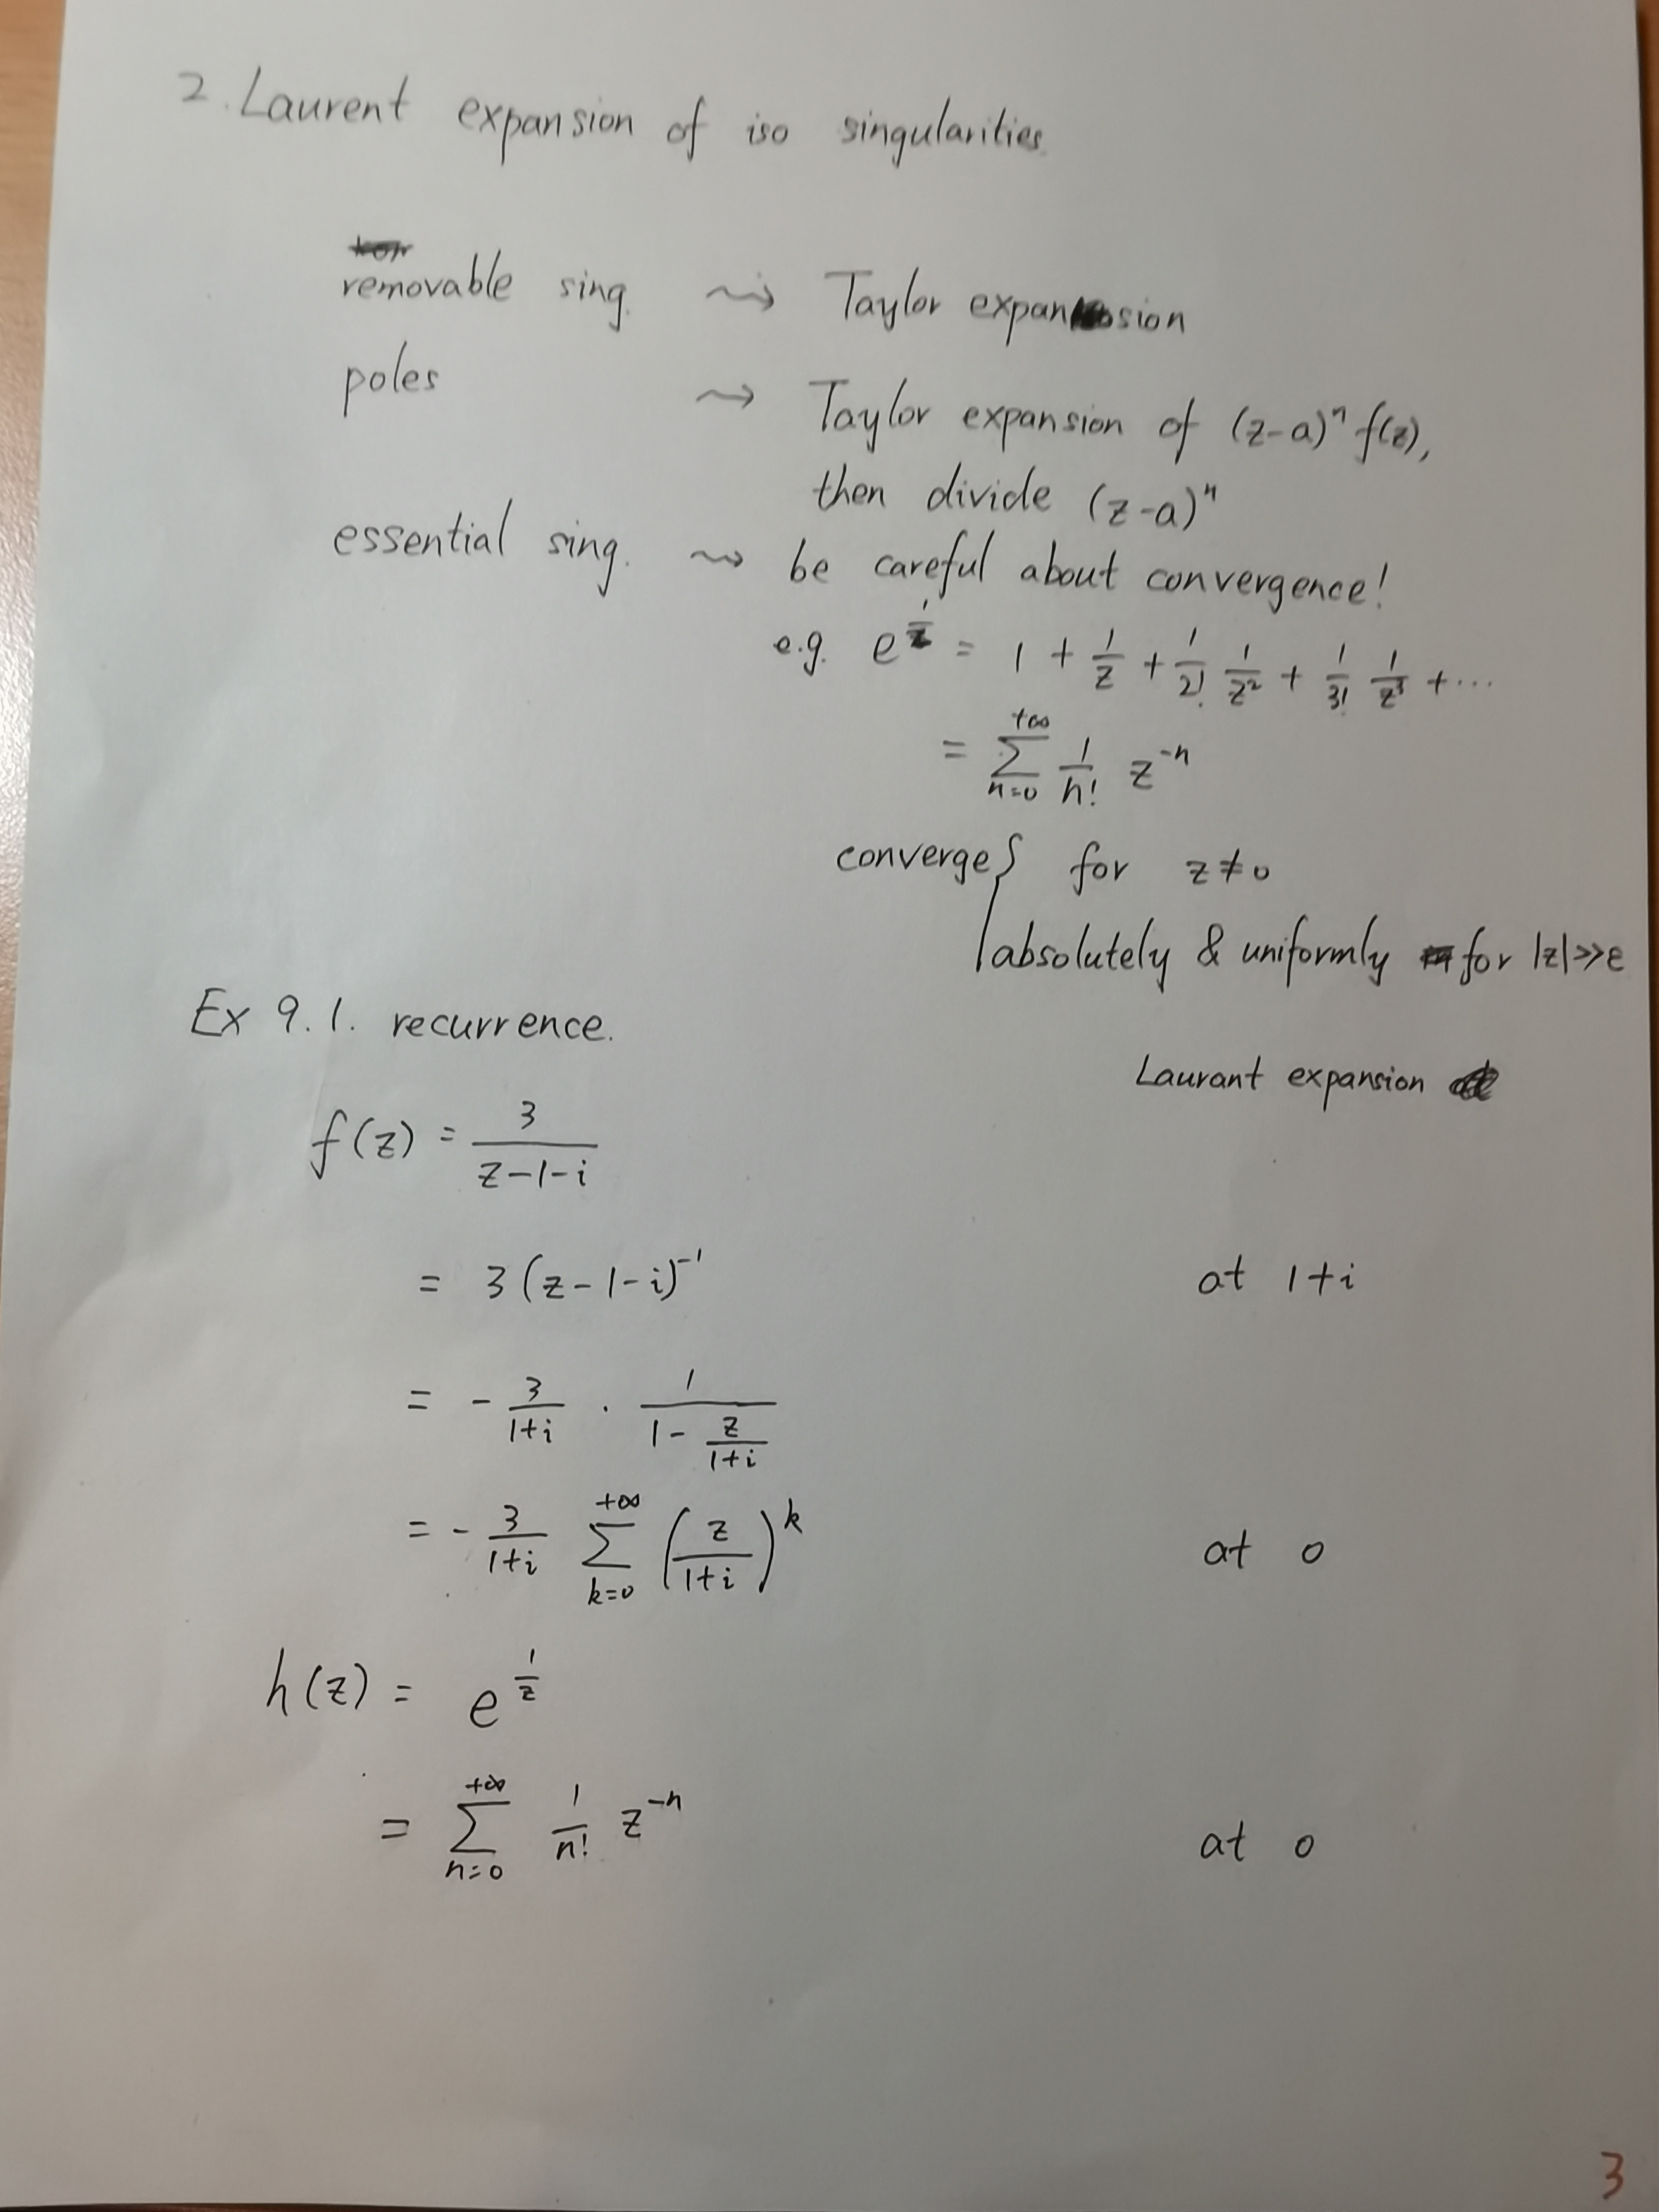 2. Laurent expansion of iso singularities.
removable sing. ⇝ Taylor expansion
poles ⇝ Taylor expansion of (z-a)ⁿ f(z),
then divide (z-a)ⁿ
essential sing. ⇝ be careful about convergence!
e.g. e^{1/z} = 1 + 1/z + 1/2! 1/z² + 1/3! 1/z³ + ...
= ∑_{n=0}^{+∞} 1/n! z^{-n}
converge { for z≠0
absolutely & uniformly for |z|>>ε
Ex 9.1. recurrence.
Laurant expansion
f(z) = 3/(z-1-i)
= 3(z-1-i)^{-1} at 1+i
= - 3/(1+i) · 1/(1 - z/(1+i))
= - 3/(1+i) ∑_{k=0}^{+∞} (z/(1+i))^k at 0
h(z) = e^{1/z}
= ∑_{n=0}^{+∞} 1/n! z^{-n} at 0
3